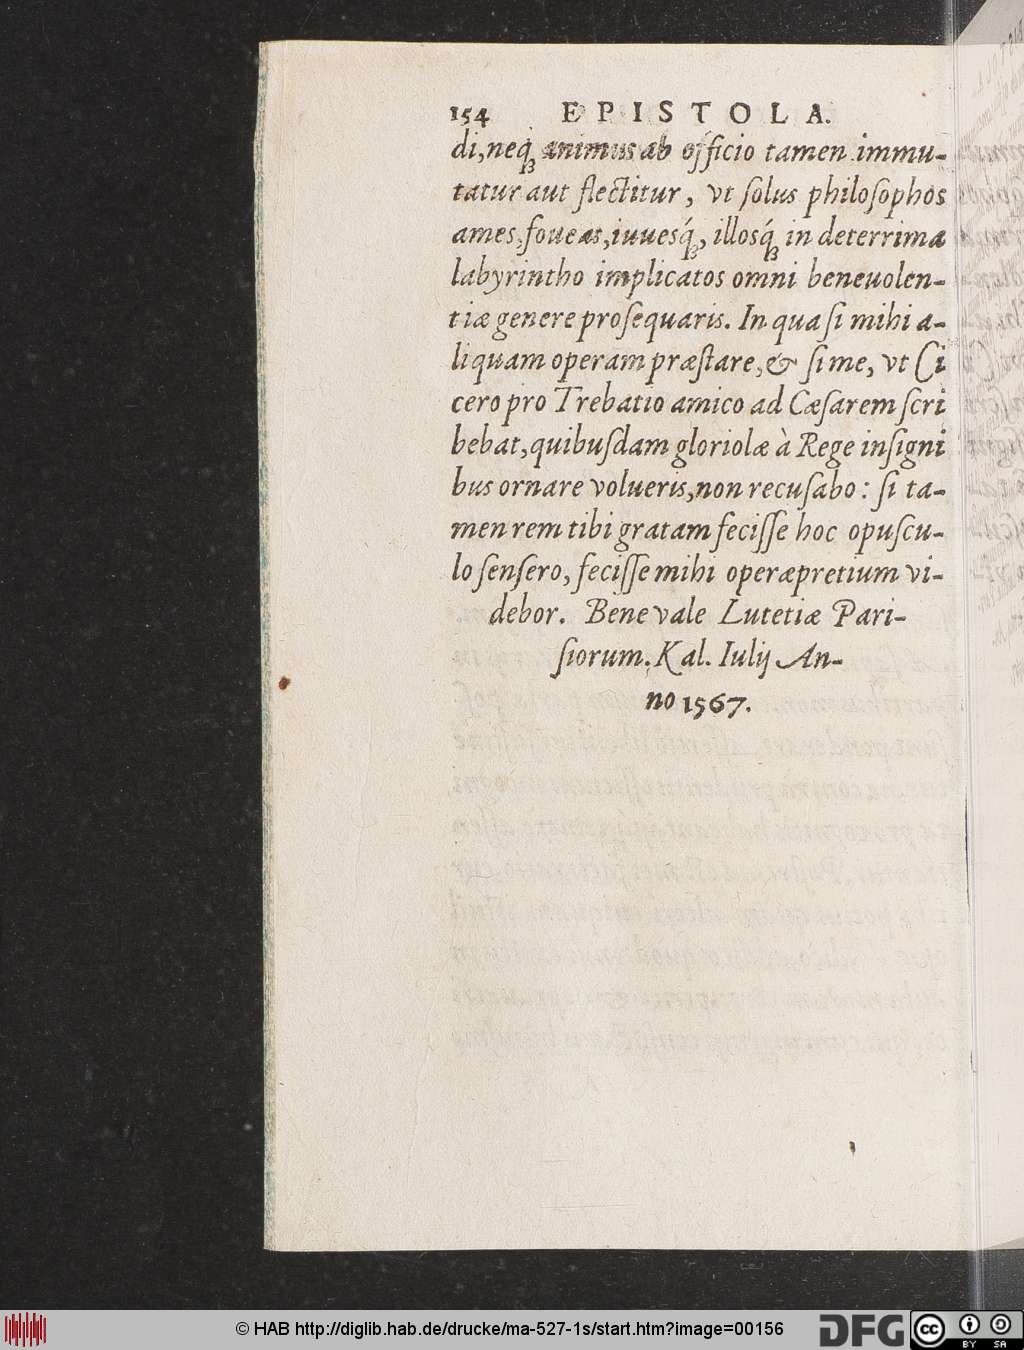 154 EPISTOLA.
di, neq́; animus ab officio tamen immu-
tatur aut flectitur, vt ſolus philoſophos
ames, foueas, iuuesq́;, illosq́; in deterrima
labyrintho implicatos omni beneuolen-
tiæ genere proſequaris. In qua ſi mihi a-
liquam operam præſtare, & ſi me, vt Ci
cero pro Trebatio amico ad Cæſarem ſcri
bebat, quibuſdam gloriolæ à Rege inſigni
bus ornare volueris, non recuſabo: ſi ta-
men rem tibi gratam feciſſe hoc opuſcu-
lo ſenſero, feciſſe mihi operæpretium vi-
debor. Bene vale Lutetiæ Pari-
ſiorum. Kal. Iulij An-
no 1567.
© HAB http://diglib.hab.de/drucke/ma-527-1s/start.htm?image=00156
DFG
cc
BY SA